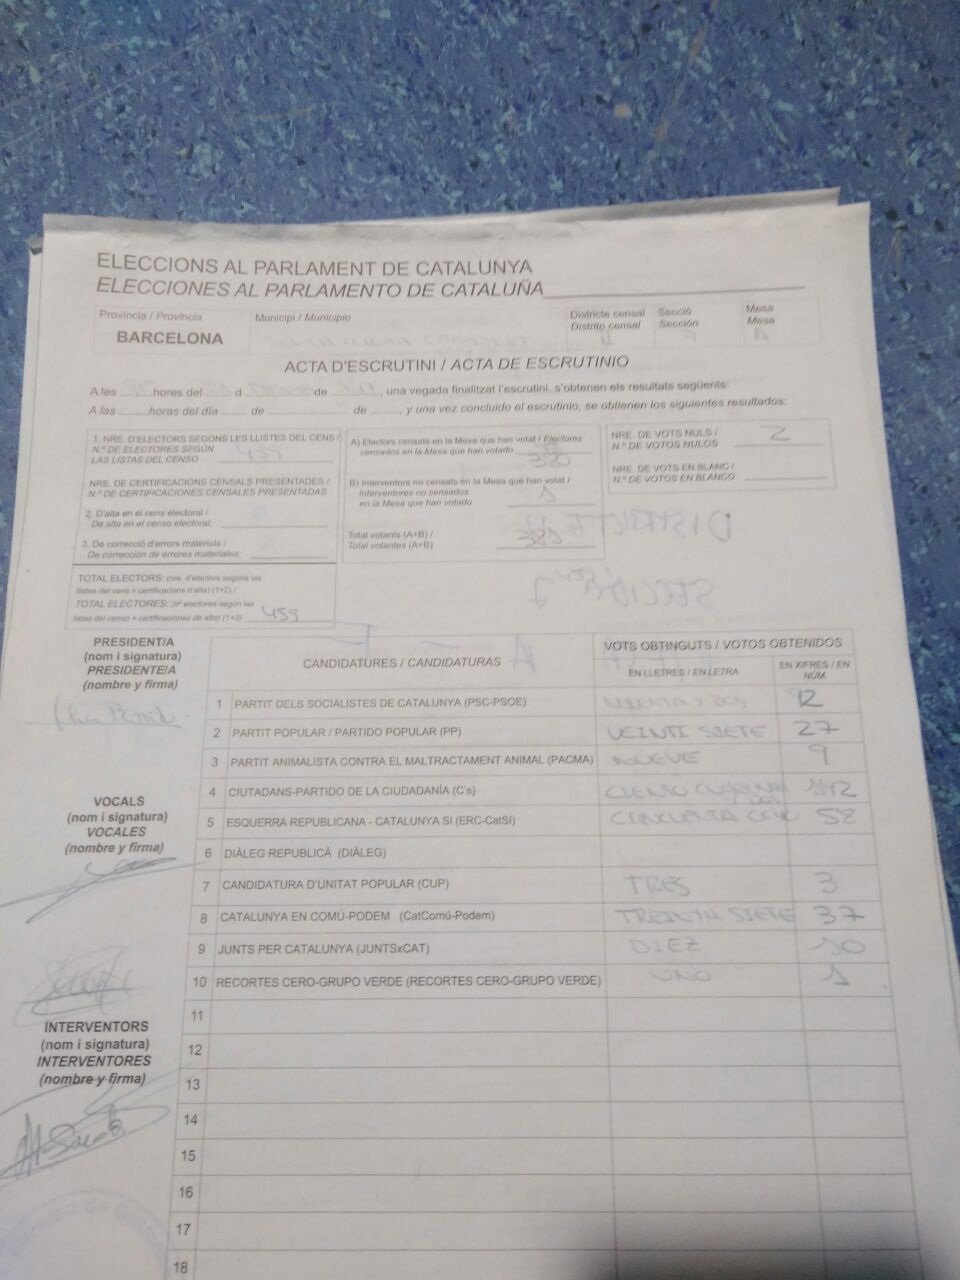 ELECCIONS AL PARLAMENT DE CATALUNYA
ELECCIONES AL PARLAMENTO DE CATALUÑA
Província / Provincia
Municipi / Municipio
Districte censal
Distrito censal
Secció
Sección
Mesa
Mesa
BARCELONA
II
A
ACTA D'ESCRUTINI / ACTA DE ESCRUTINIO
A les ..... hores del ..... d ..... de ....., una vegada finalitzat l'escrutini, s'obtenen els resultats següents:
A las .......... horas del día ...... de .................. de .........., y una vez concluido el escrutinio, se obtienen los siguientes resultados:
1. NRE. D'ELECTORS SEGONS LES LLISTES DEL CENS /
N.º DE ELECTORES SEGÚN
LAS LISTAS DEL CENSO 459
NRE. DE CERTIFICACIONS CENSALS PRESENTADES /
N.º DE CERTIFICACIONES CENSALES PRESENTADAS
2. D'alta en el cens electoral /
De alta en el censo electoral:
3. De correcció d'errors materials /
De corrección de errores materiales:
TOTAL ELECTORS: (nre. d'electors segons les
llistes del cens + certificacions d'alta) (1+2) /
TOTAL ELECTORES: (nº electores según las
listas del censo + certificaciones de alta) (1+2) 459
A) Electors censats en la Mesa que han votat / Electores
censados en la Mesa que han votado 380
B) Interventors no censats en la Mesa que han votat /
Interventores no censados
en la Mesa que han votado 1
Total votants (A+B) /
Total votantes (A+B)
NRE. DE VOTS NULS /
N.º DE VOTOS NULOS 2
NRE. DE VOTS EN BLANC /
N.º DE VOTOS EN BLANCO
DISTRICTE
SECCIÓN
PRESIDENT/A
(nom i signatura)
PRESIDENTE/A
(nombre y firma)
VOCALS
(nom i signatura)
VOCALES
(nombre y firma)
INTERVENTORS
(nom i signatura)
INTERVENTORES
(nombre y firma)
CANDIDATURES / CANDIDATURAS
VOTS OBTINGUTS / VOTOS OBTENIDOS
EN LLETRES / EN LETRA
EN XIFRES / EN NÚM.
1 PARTIT DELS SOCIALISTES DE CATALUNYA (PSC-PSOE) NOVENTA Y DOS 92
2 PARTIT POPULAR / PARTIDO POPULAR (PP) VEINTI SIETE 27
3 PARTIT ANIMALISTA CONTRA EL MALTRACTAMENT ANIMAL (PACMA) NUEVE 9
4 CIUTADANS-PARTIDO DE LA CIUDADANÍA (C's) CIENTO CUARENTA Y DOS 142
5 ESQUERRA REPUBLICANA - CATALUNYA SI (ERC-CatSí) CINCUENTA OCHO 58
6 DIÀLEG REPUBLICÀ (DIÀLEG)
7 CANDIDATURA D'UNITAT POPULAR (CUP) TRES 3
8 CATALUNYA EN COMÚ-PODEM (CatComú-Podem) TREINTA SIETE 37
9 JUNTS PER CATALUNYA (JUNTSxCAT) DIEZ 10
10 RECORTES CERO-GRUPO VERDE (RECORTES CERO-GRUPO VERDE) UNO 1
11
12
13
14
15
16
17
18